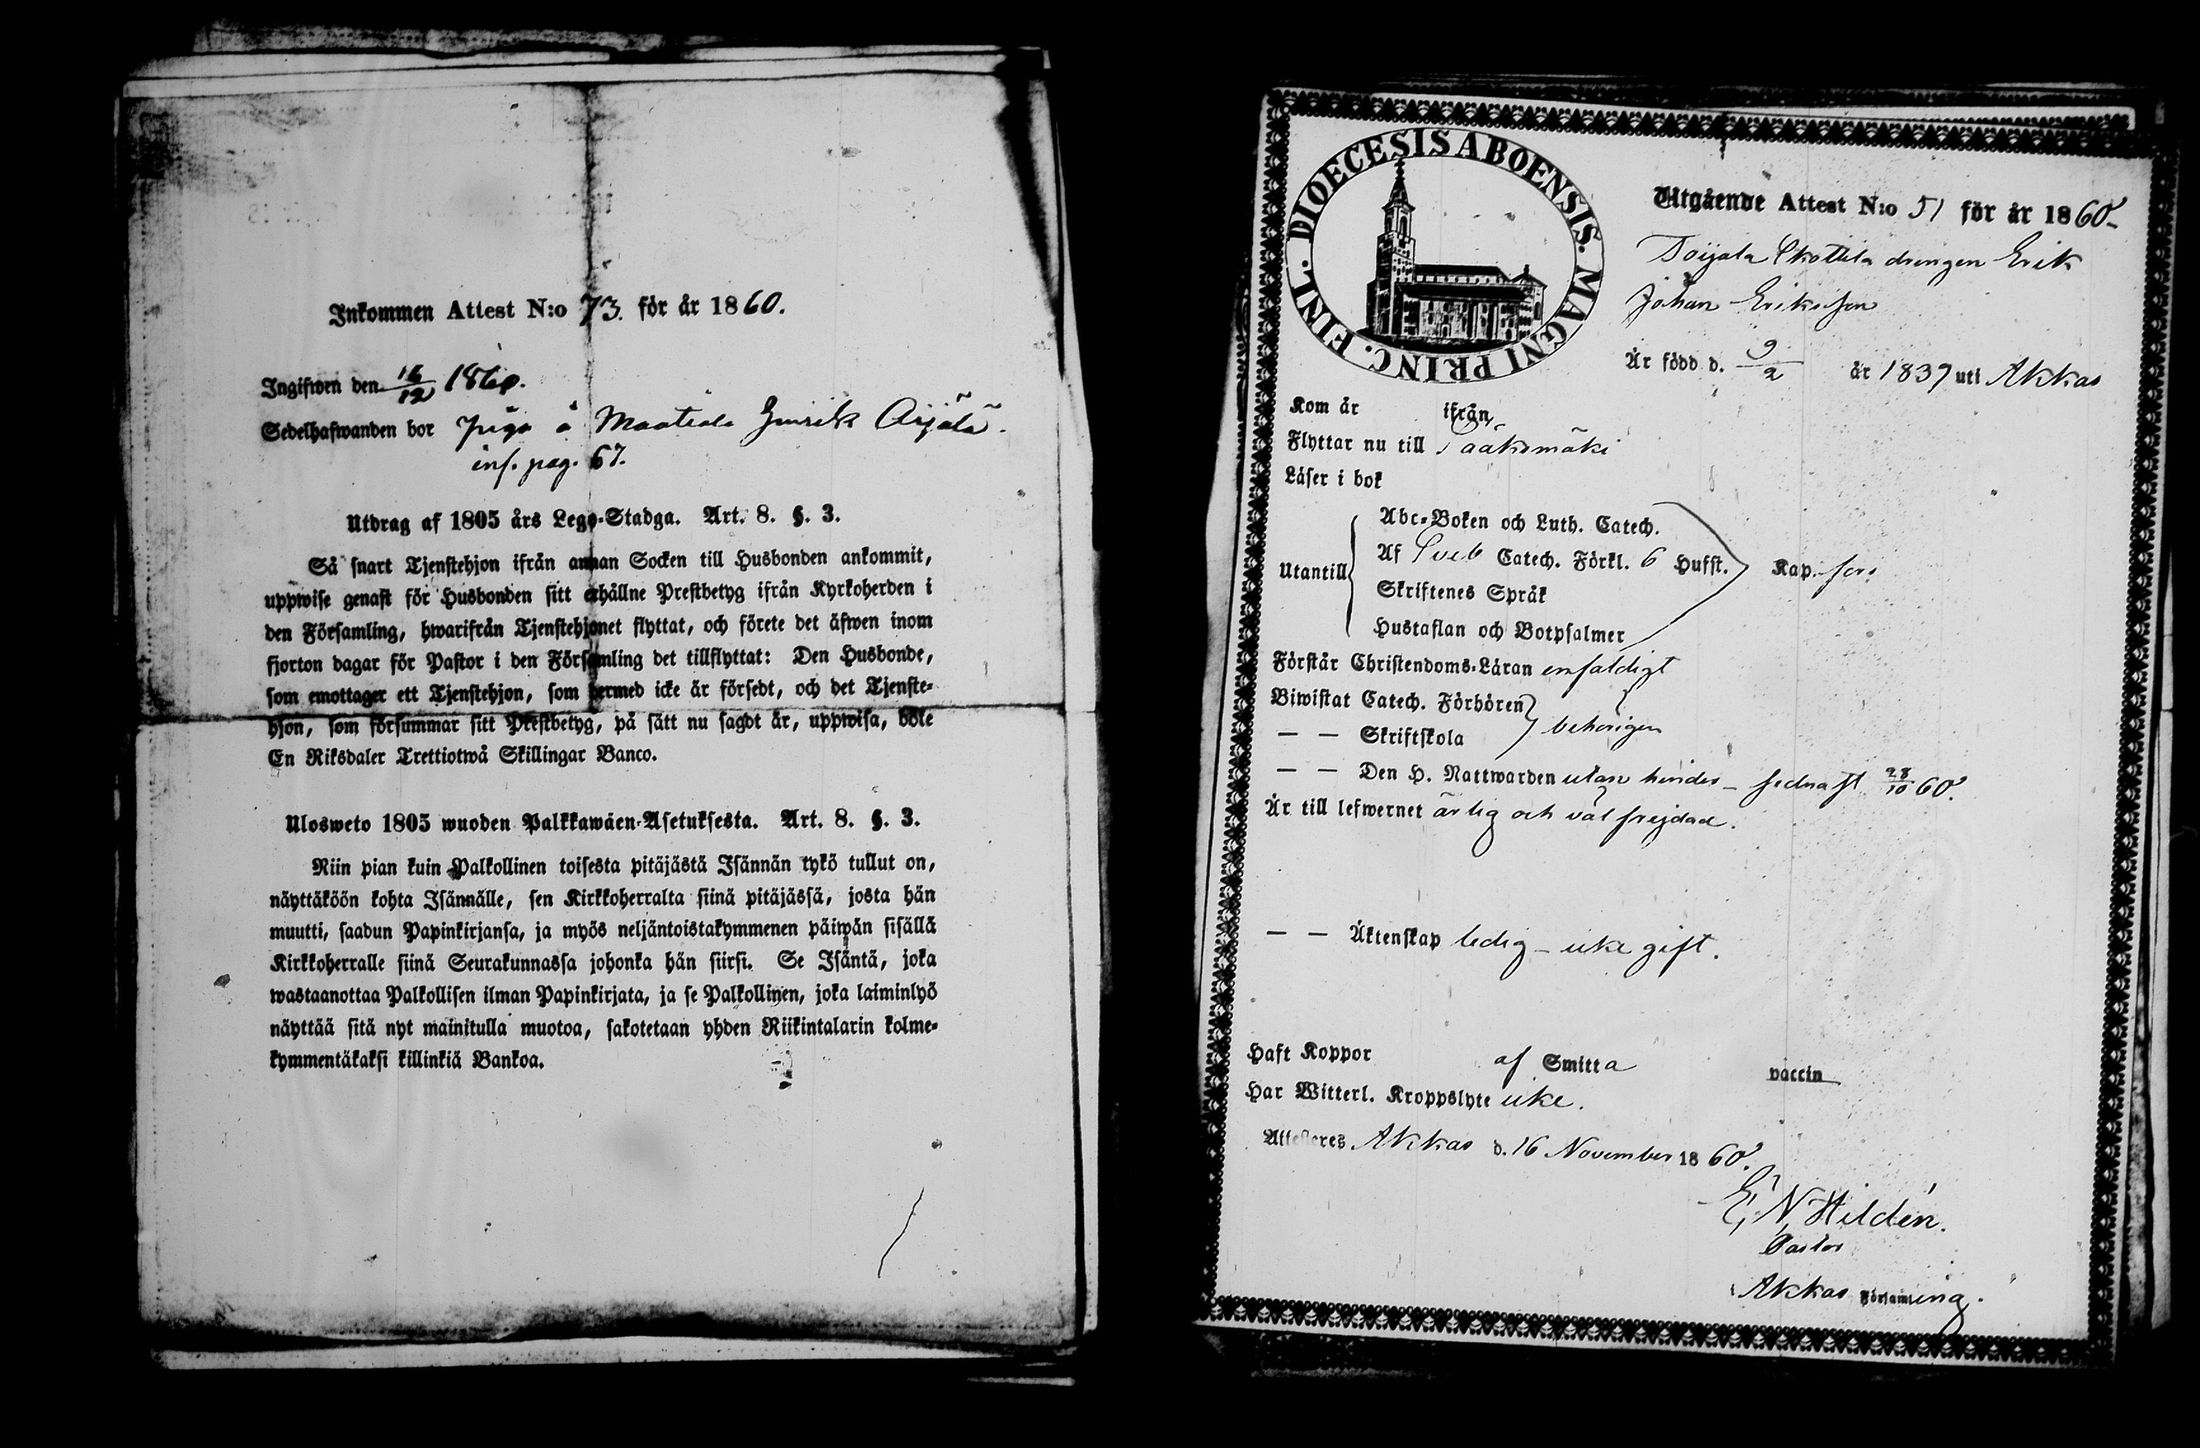 Inkommen Attest N:o 73. för år 1860.
Ingifwen den 16/12 1860.
Sedelhafwanden bor Piga å Maatiala Henrik Arjälä.
inf. pag. 67.
Utdrag af 1805 års Lego-Stadga. Art. 8. §. 3.
Så snart Tjenstehjon ifrån annan Socken till Husbonden ankommit,
uppwise genast för Husbonden sitt erhållne Prestbetyg ifrån Kyrkoherden i
den Församling, hwarifrån Tjenstehjonet flyttat, och förete det äfwen inom
fjorton dagar för Pastor i den Församling det tillflyttat: Den Husbonde,
som emottager ett Tjenstehjon, som hermed icke är försedt, och det Tjenste-
hjon, som försummar sitt Prestbetyg, på sätt nu sagdt är, uppwisa, böte
En Riksdaler Trettiotwå Skillingar Banco.
Ulosweto 1805 wuoden Palkkawäen-Asetuksesta. Art. 8. §. 3.
Niin pian kuin Palkollinen toisesta pitäjästä Isännän tykö tullut on,
näyttäköön kohta Isännälle, sen Kirkkoherralta siinä pitäjässä, josta hän
muutti, saadun Papinkirjansa, ja myös neljäntoistakymmenen päiwän sisällä
Kirkkoherralle siinä Seurakunnassa johonka hän siirsi. Se Isäntä, joka
wastaanottaa Palkollisen ilman Papinkirjata, ja se Palkollinen, joka laiminlyö
näyttää sitä nyt mainitulla muotoa, sakotetaan yhden Riikintalarin kolme-
kymmentäkaksi killinkiä Bankoa.
DIOECESIS ABOENSIS. MAGNI PRINC. FINL.
Utgående Attest N:o 51 för år 1860
Toijala Skottila drengen Erik
Johan Eriksson
Är född d. 9/2 år 1839 uti Akkas
Kom år ifrån
Flyttar nu till Sääksmäki
Läser i bok
Abc-Boken och Luth. Catech.
Utantill Af Sveb Catech. Förkl. 6 Hufst. Kap. fors.
Skriftenes Språk
Hustaflan och Botpsalmer
Förstår Christendoms-Läran enfaldigt
Biwistat Catech. Förhören
— — Skriftskola behörigen
— — Den H. Nattwarden utan hinder – sednast 28/10 60.
Är till lefwernet ärlig och väl frejdad.
— — Äktenskap ledig – icke gift.
Haft Koppor af Smitta vaccin
Har Witterl. Kroppslyte icke.
Attesteres Akkas d. 16 November 1860.
E. N. Hildén.
Pastor
Akkas Församling.